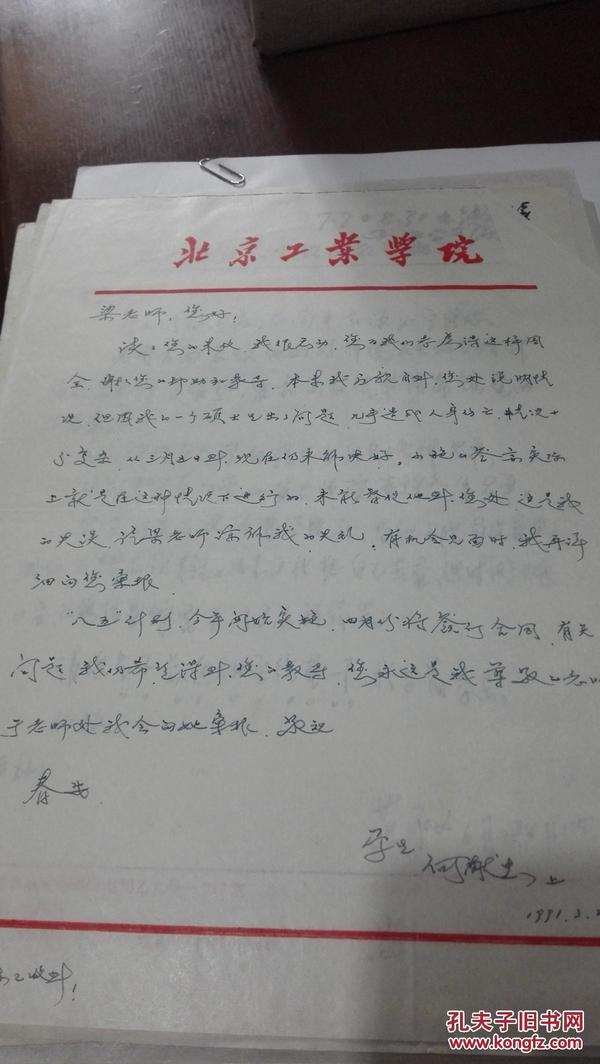 北京工业学院
梁老师，您好！
读了您的来收，我很感动，您为我们考虑得这样周
全，谢谢您的帮助和教导。本来我应亲自到您处说明情
况，但因我的一个硕士生出了问题，几乎造成人身伤亡，情况十
分复杂，从三月五日到现在仍未解决好。
上就是在这种情况下进行的，未能督促他到您处，这是我
的失误，请梁老师谅解我的失礼。有机会见面时，我再详
细向您禀报。
“八五”计划，今年开始实施，四月份将签订合同，有关
问题我仍希望得到您的教导，您永远是我尊敬的老师
于老师处我会向她禀报。敬祝
春安
学生
何献忠 上
1991.3.2
收到！
孔夫子旧书网
www.kongfz.com